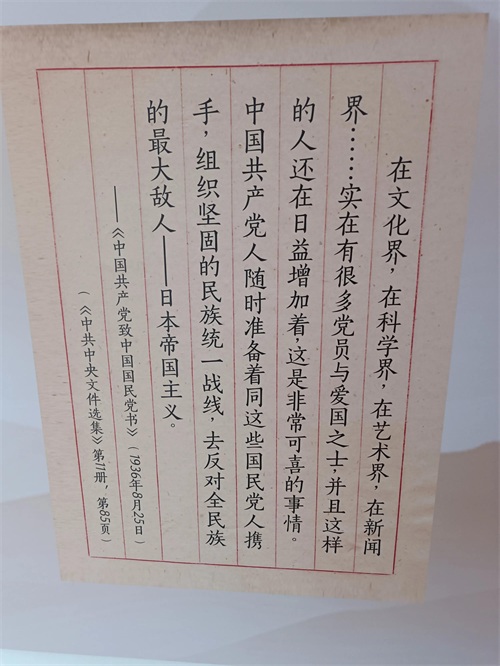 在文化界，在科学界，在艺术界，在新闻
界……实在有很多党员与爱国之士，并且这样
的人还在日益增加着，这是非常可喜的事情。
中国共产党人随时准备着同这些国民党人携
手，组织坚固的民族统一战线，去反对全民族
的最大敌人——日本帝国主义。
——《中国共产党致中国国民党书》（1936年8月25日）
（《中共中央文件选集》第11册，第85页）